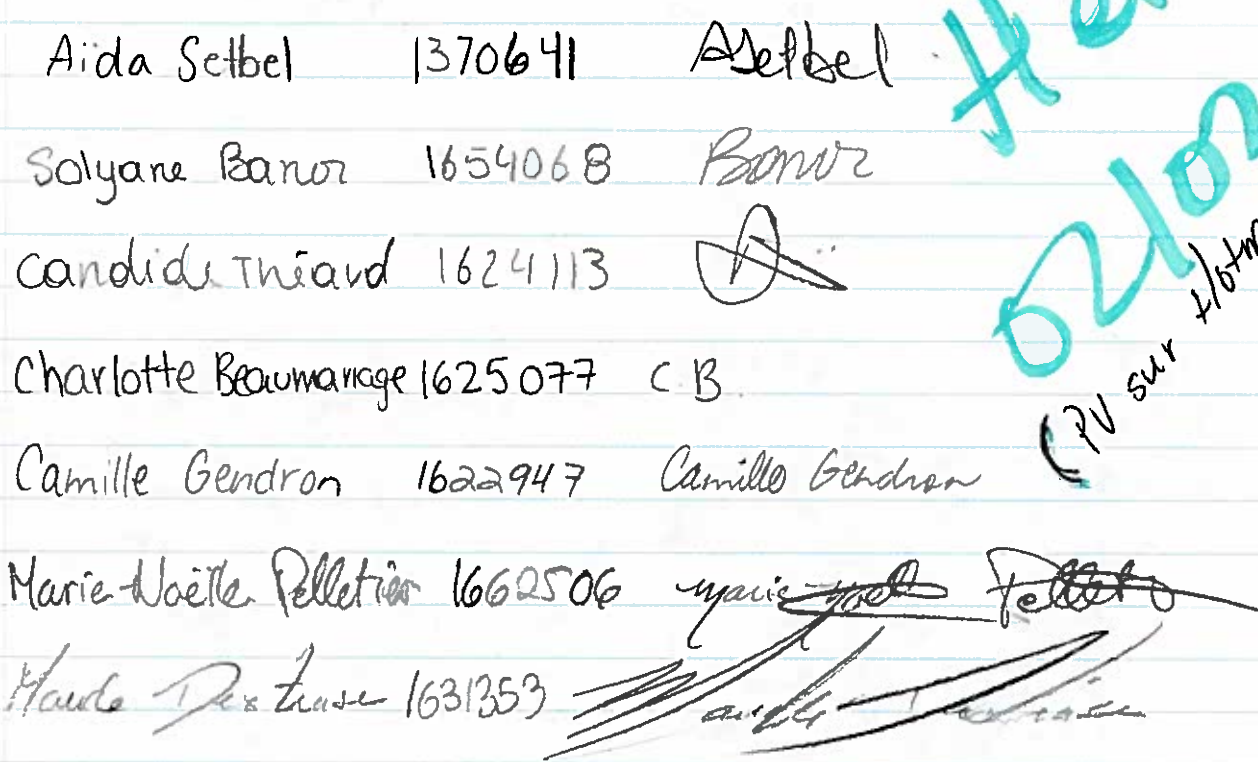 Aïda Setbel 1370641 ASetbel
Solyane Banor 1654068 Banor
Candide Théard 1624113
Charlotte Beaumariage 1625077 C B
Camille Gendron 1622947 Camille Gendron
Marie-Noëlle Pelletier 1662506 Marie-Noëlle Pelletier
Maude Dextrase 1631353
(PV sur